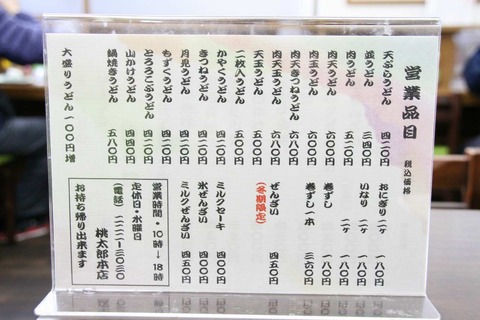 営業品目 税込価格
天ぷらうどん 四二〇
並うどん 三四〇
肉うどん 五二〇
肉玉うどん 六〇〇
肉天うどん 六〇〇
肉天きつねうどん 六八〇
肉天玉うどん 六八〇
天玉うどん 五〇〇
二枚入うどん 五〇〇
かやくうどん 四二〇
きつねうどん 四二〇
月見うどん 四二〇
もずくうどん
とろろこぶうどん 四二〇
山かけうどん
鍋焼きうどん 五八〇
大盛りうどん一〇〇円増
おにぎり二ヶ 一八〇
いなり 二ヶ 一八〇
おすし 二ヶ 一八〇
巻ずし 二ヶ 一八〇
巻ずし一本 三六〇
ぜんざい 四五〇
（冬期限定）
ミルクセーキ 四〇〇
氷ぜんざい 四〇〇
ミルクぜんざい
営業時間・10時→18時
定休日・水曜日
（電話）二二二一-三〇三〇
桃太郎本店
お持ち帰り出来ます